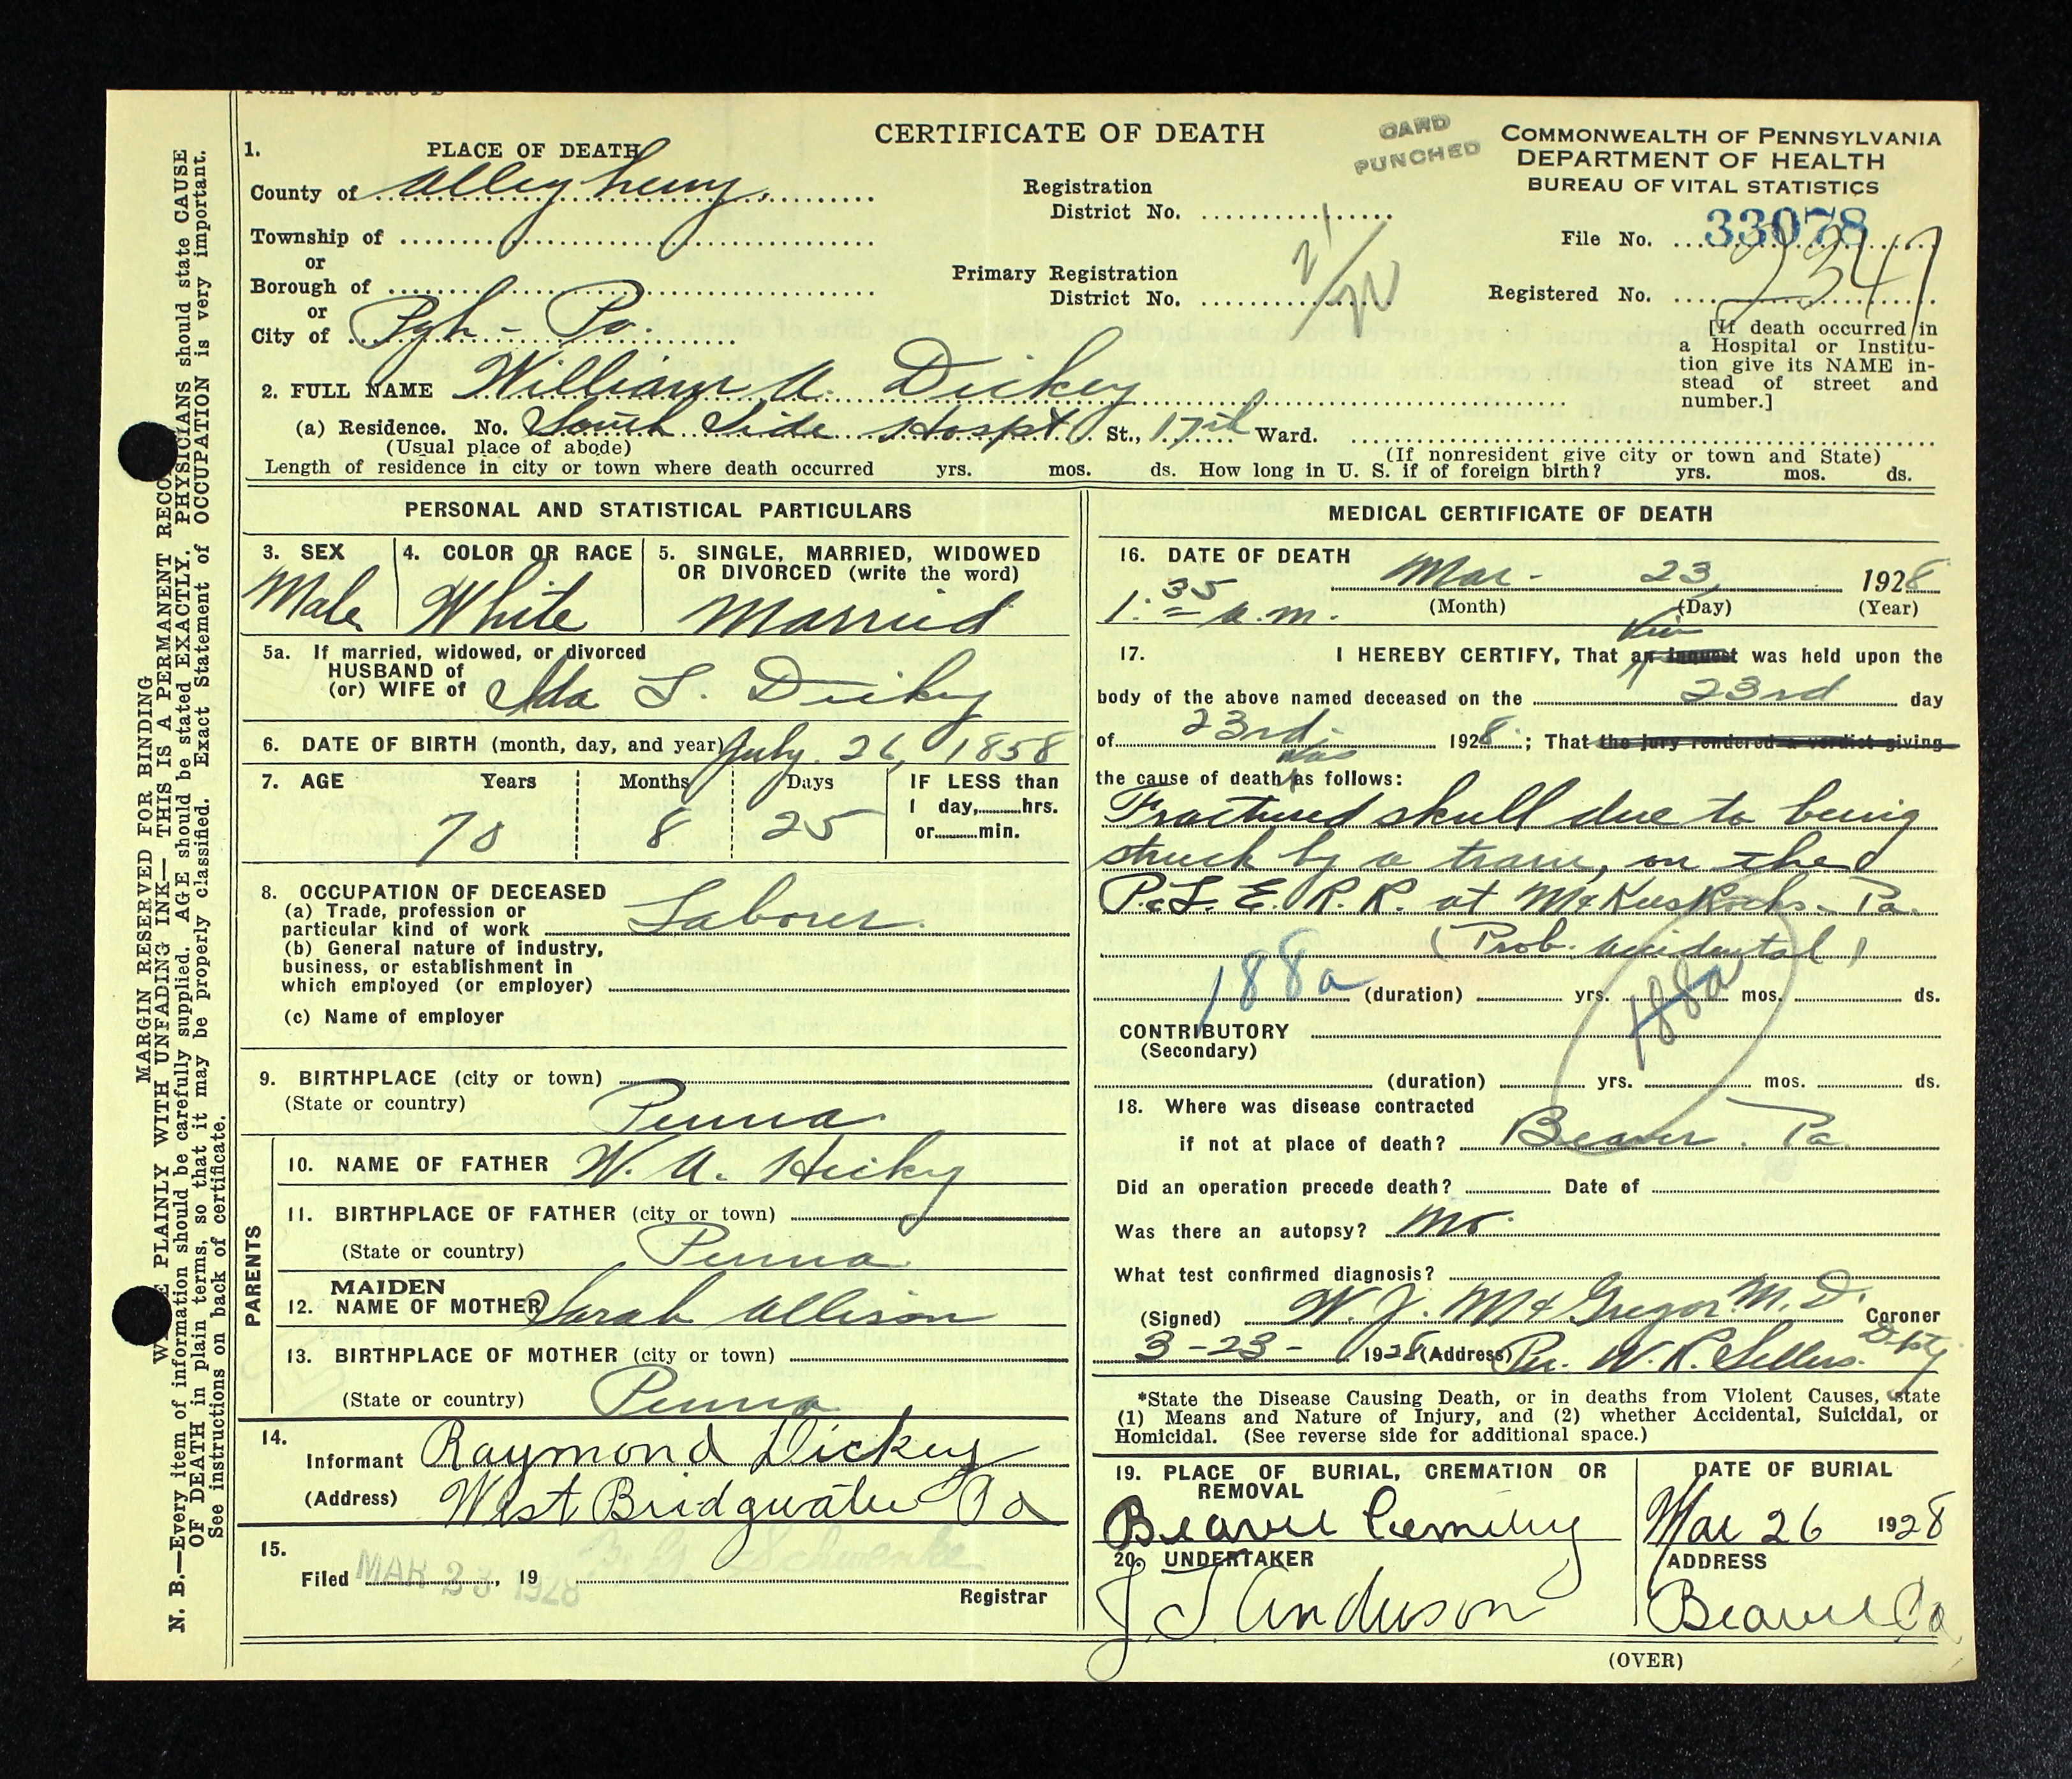 Form V. S. No. 5-B
CERTIFICATE OF DEATH
CARD PUNCHED
COMMONWEALTH OF PENNSYLVANIA
DEPARTMENT OF HEALTH
BUREAU OF VITAL STATISTICS
1. PLACE OF DEATH
County of Allegheny.
Township of
or
Borough of
or
City of Pgh - Pa.
Registration District No.
Primary Registration District No.
File No. 33078
Registered No. 2347
[If death occurred in a Hospital or Institution give its NAME instead of street and number.]
2. FULL NAME William A. Dickey
(a) Residence. No. South Side Hospt St., 17th Ward.
(Usual place of abode) (If nonresident give city or town and State)
Length of residence in city or town where death occurred yrs. mos. ds. How long in U. S. if of foreign birth? yrs. mos. ds.
PERSONAL AND STATISTICAL PARTICULARS
3. SEX Male
4. COLOR OR RACE White
5. SINGLE, MARRIED, WIDOWED OR DIVORCED (write the word) Married
5a. If married, widowed, or divorced
HUSBAND of
(or) WIFE of Ida L. Dickey
6. DATE OF BIRTH (month, day, and year) July. 26, 1858
7. AGE Years Months Days IF LESS than
1 day, hrs.
or min.
70 8 25
8. OCCUPATION OF DECEASED
(a) Trade, profession or particular kind of work Laborer.
(b) General nature of industry, business, or establishment in which employed (or employer)
(c) Name of employer
9. BIRTHPLACE (city or town)
(State or country) Penna.
PARENTS
10. NAME OF FATHER W. A. Hicky
11. BIRTHPLACE OF FATHER (city or town)
(State or country) Penna
12. MAIDEN NAME OF MOTHER Sarah Allison
13. BIRTHPLACE OF MOTHER (city or town)
(State or country) Penna
14. Informant Raymond Dickey
(Address) West Bridgwater Pa
15. Filed MAR 23 1928, 19 B. G. Schwenke
Registrar
MEDICAL CERTIFICATE OF DEATH
16. DATE OF DEATH Mar - 23, 1928
1:35 a.m. (Month) (Day) (Year)
17. I HEREBY CERTIFY, That an inquest View was held upon the
body of the above named deceased on the 23rd day
of 23rd 1928; That the jury rendered a verdict giving
the cause of death was as follows:
Fractured skull due to being
struck by a train, on the
P.&L. E. R. R. at McKees Rocks - Pa.
(Prob. accidental)
188a (duration) yrs. 188a mos. ds.
CONTRIBUTORY
(Secondary)
(duration) yrs. mos. ds.
18. Where was disease contracted
if not at place of death? Beaver. Pa.
Did an operation precede death? Date of
Was there an autopsy? No.
What test confirmed diagnosis?
(Signed) W. J. McGregor. M. D. Coroner
3-23- 1928 (Address) Per. W. R. Sellers. Dpty
*State the Disease Causing Death, or in deaths from Violent Causes, state
(1) Means and Nature of Injury, and (2) whether Accidental, Suicidal, or
Homicidal. (See reverse side for additional space.)
19. PLACE OF BURIAL, CREMATION OR REMOVAL
Beaver Cemetery
DATE OF BURIAL
Mar 26 1928
20. UNDERTAKER
J. T. Anderson
ADDRESS
Beaver Pa
(OVER)
MARGIN RESERVED FOR BINDING
PLAINLY WITH UNFADING INK—THIS IS A PERMANENT RECO
N. B.—Every item of information should be carefully supplied. AGE should be stated EXACTLY. PHYSICIANS should state CAUSE
OF DEATH in plain terms, so that it may be properly classified. Exact Statement of OCCUPATION is very important.
See instructions on back of certificate.